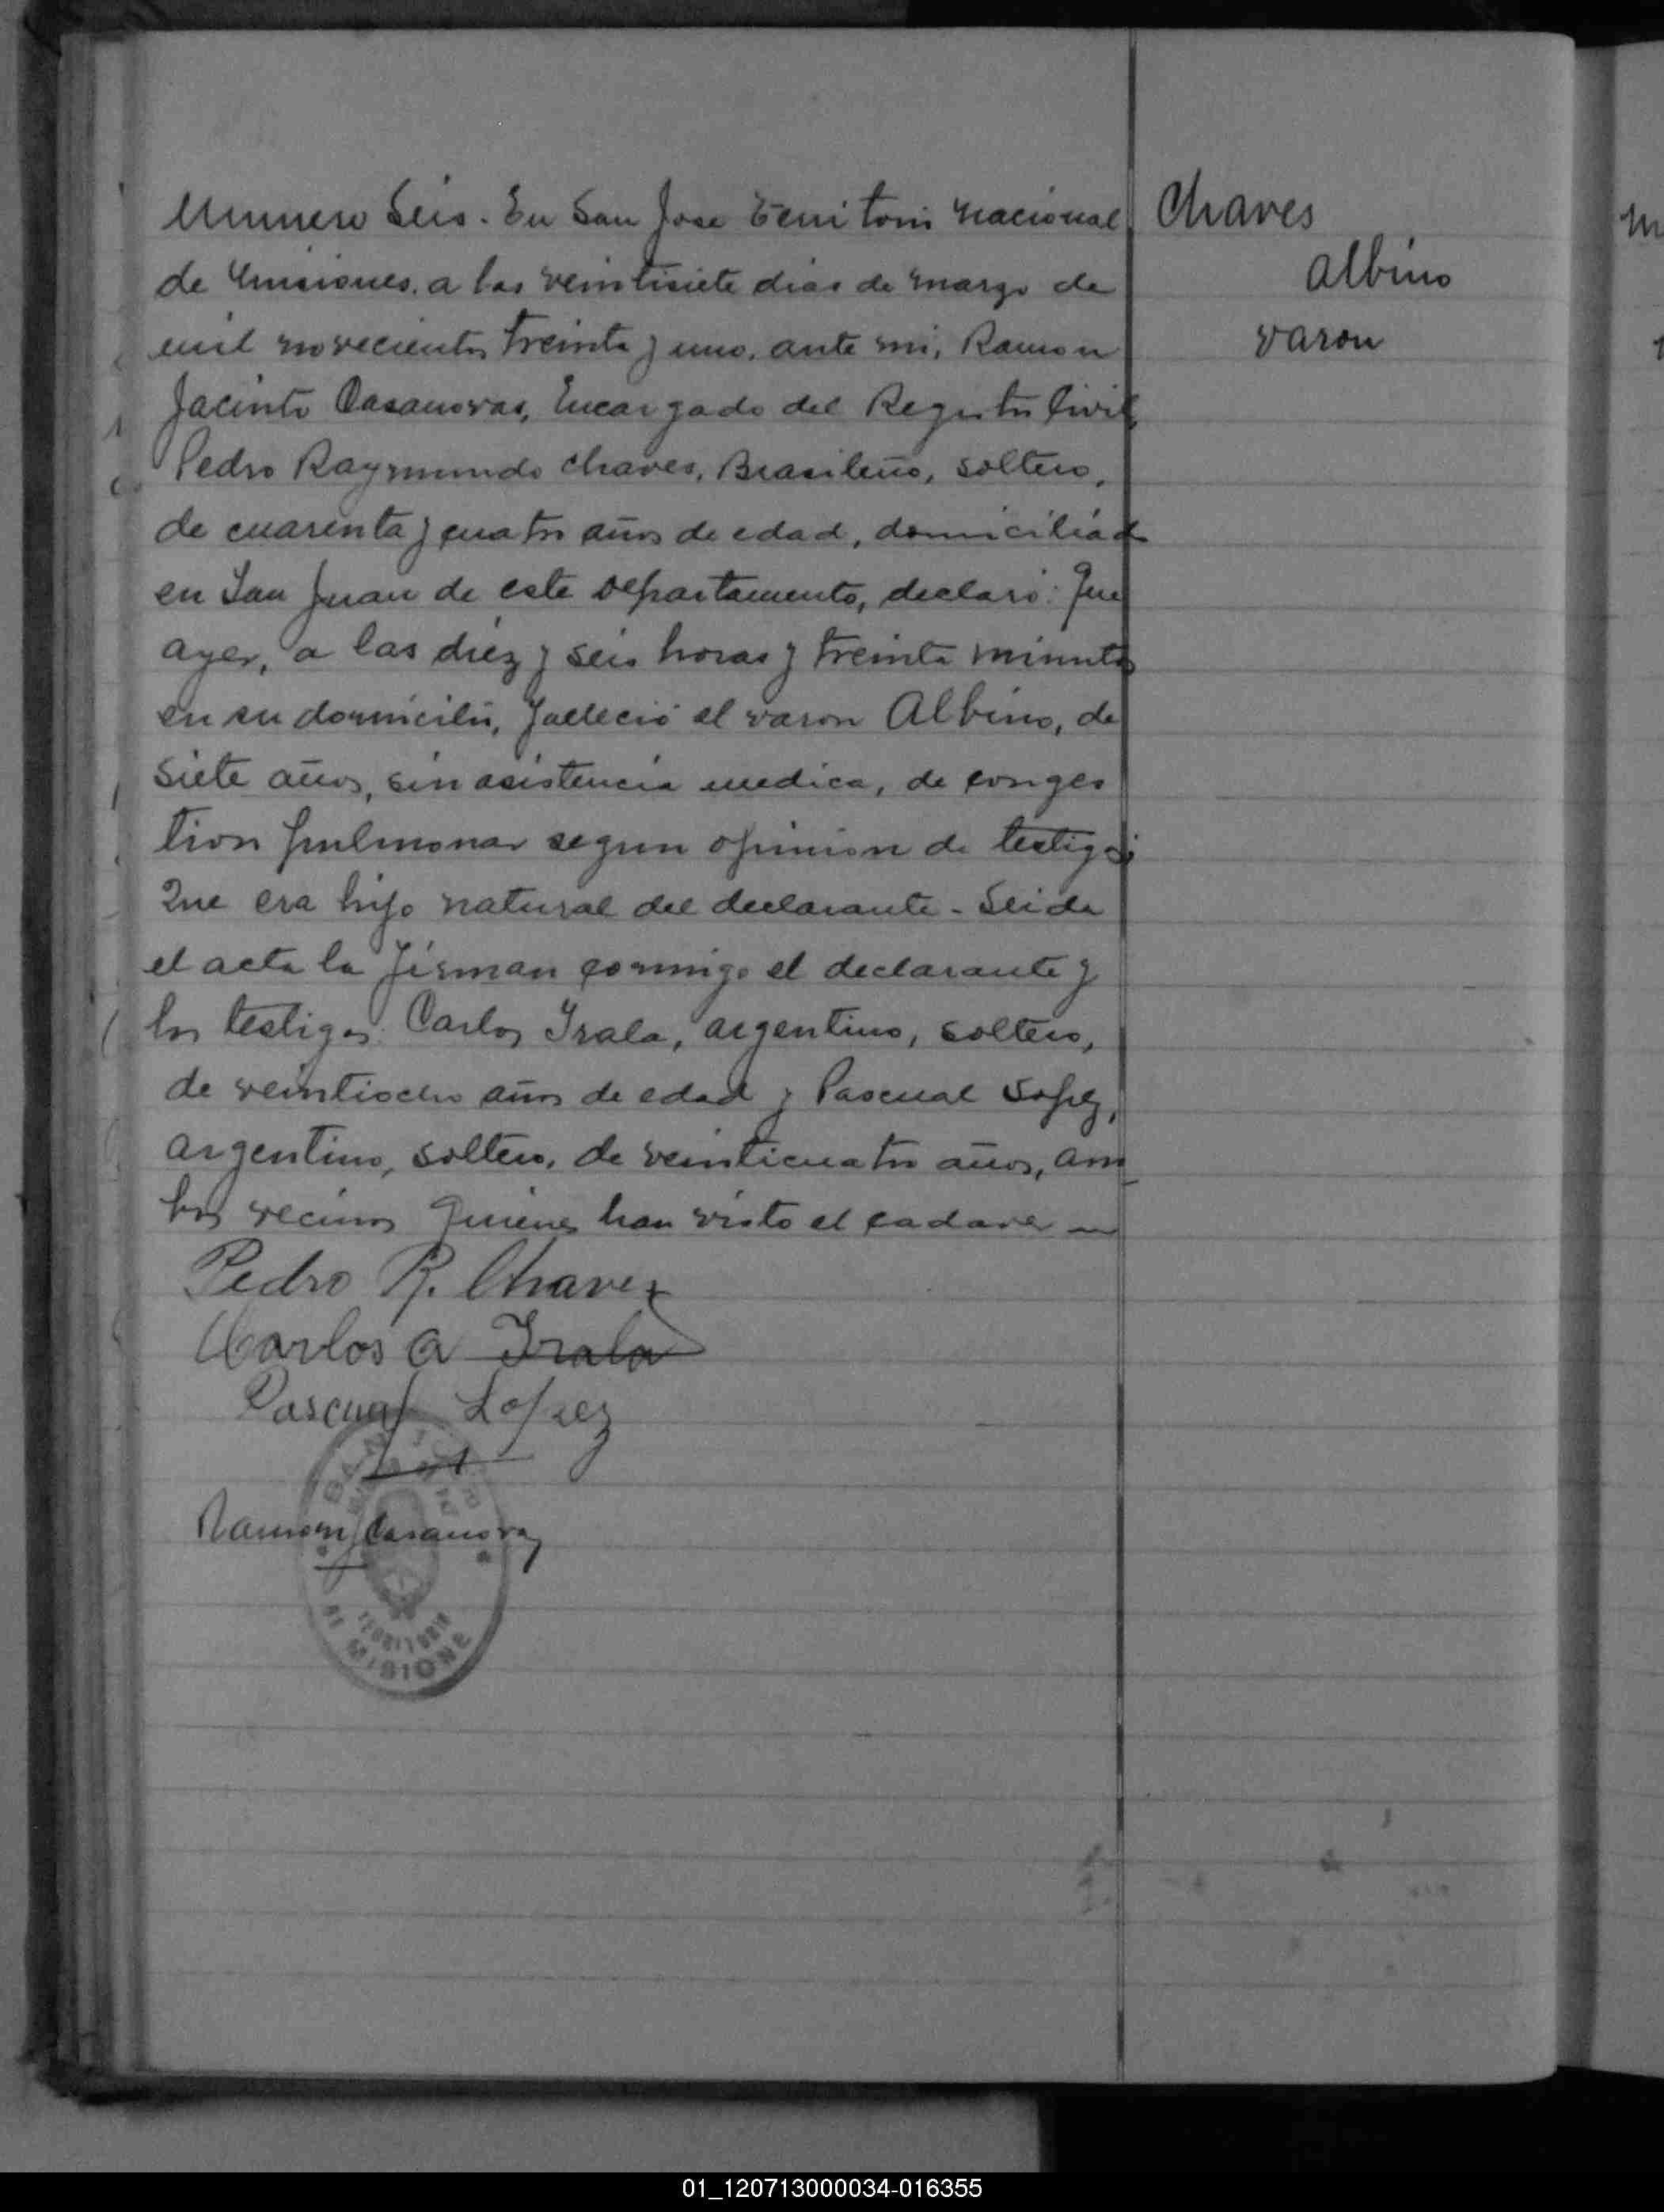 Numero Seis. En San Jose Territorio Nacional
de Misiones, a los veintisiete dias de marzo de
mil novecientos treinta y uno, ante mi, Ramon
Jacinto Casanovas, Encargado del Registro Civil,
Pedro Raymundo Chaves, Brasileño, soltero,
de cuarenta y cuatro años de edad, domiciliado
en San Juan de este departamento, declaró: Que
ayer, a las diez y seis horas y treinta minutos
en su domicilio, falleció el varon Albino, de
siete años, sin asistencia medica, de conges
tion pulmonar segun opinion de testigos;
Que era hijo natural del declarante - Leida
el acta la firman conmigo el declarante y
los testigos: Carlos Irala, argentino, soltero,
de veintiocho años de edad y Pascual Lopez,
argentino, soltero, de veinticuatro años, am
bos vecinos quienes han visto el cadaver
Pedro R. Chavez
Carlos A Irala
Pascual Lopez
Ramon J Casanovas
SAN JOSE
TERRITORIO
DE MISIONE
Chaves
Albino
varon
01_120713000034-016355